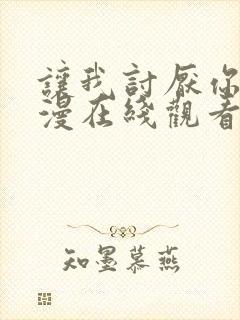 讓我討厭你
漫在綫觀看
知墨慕燕